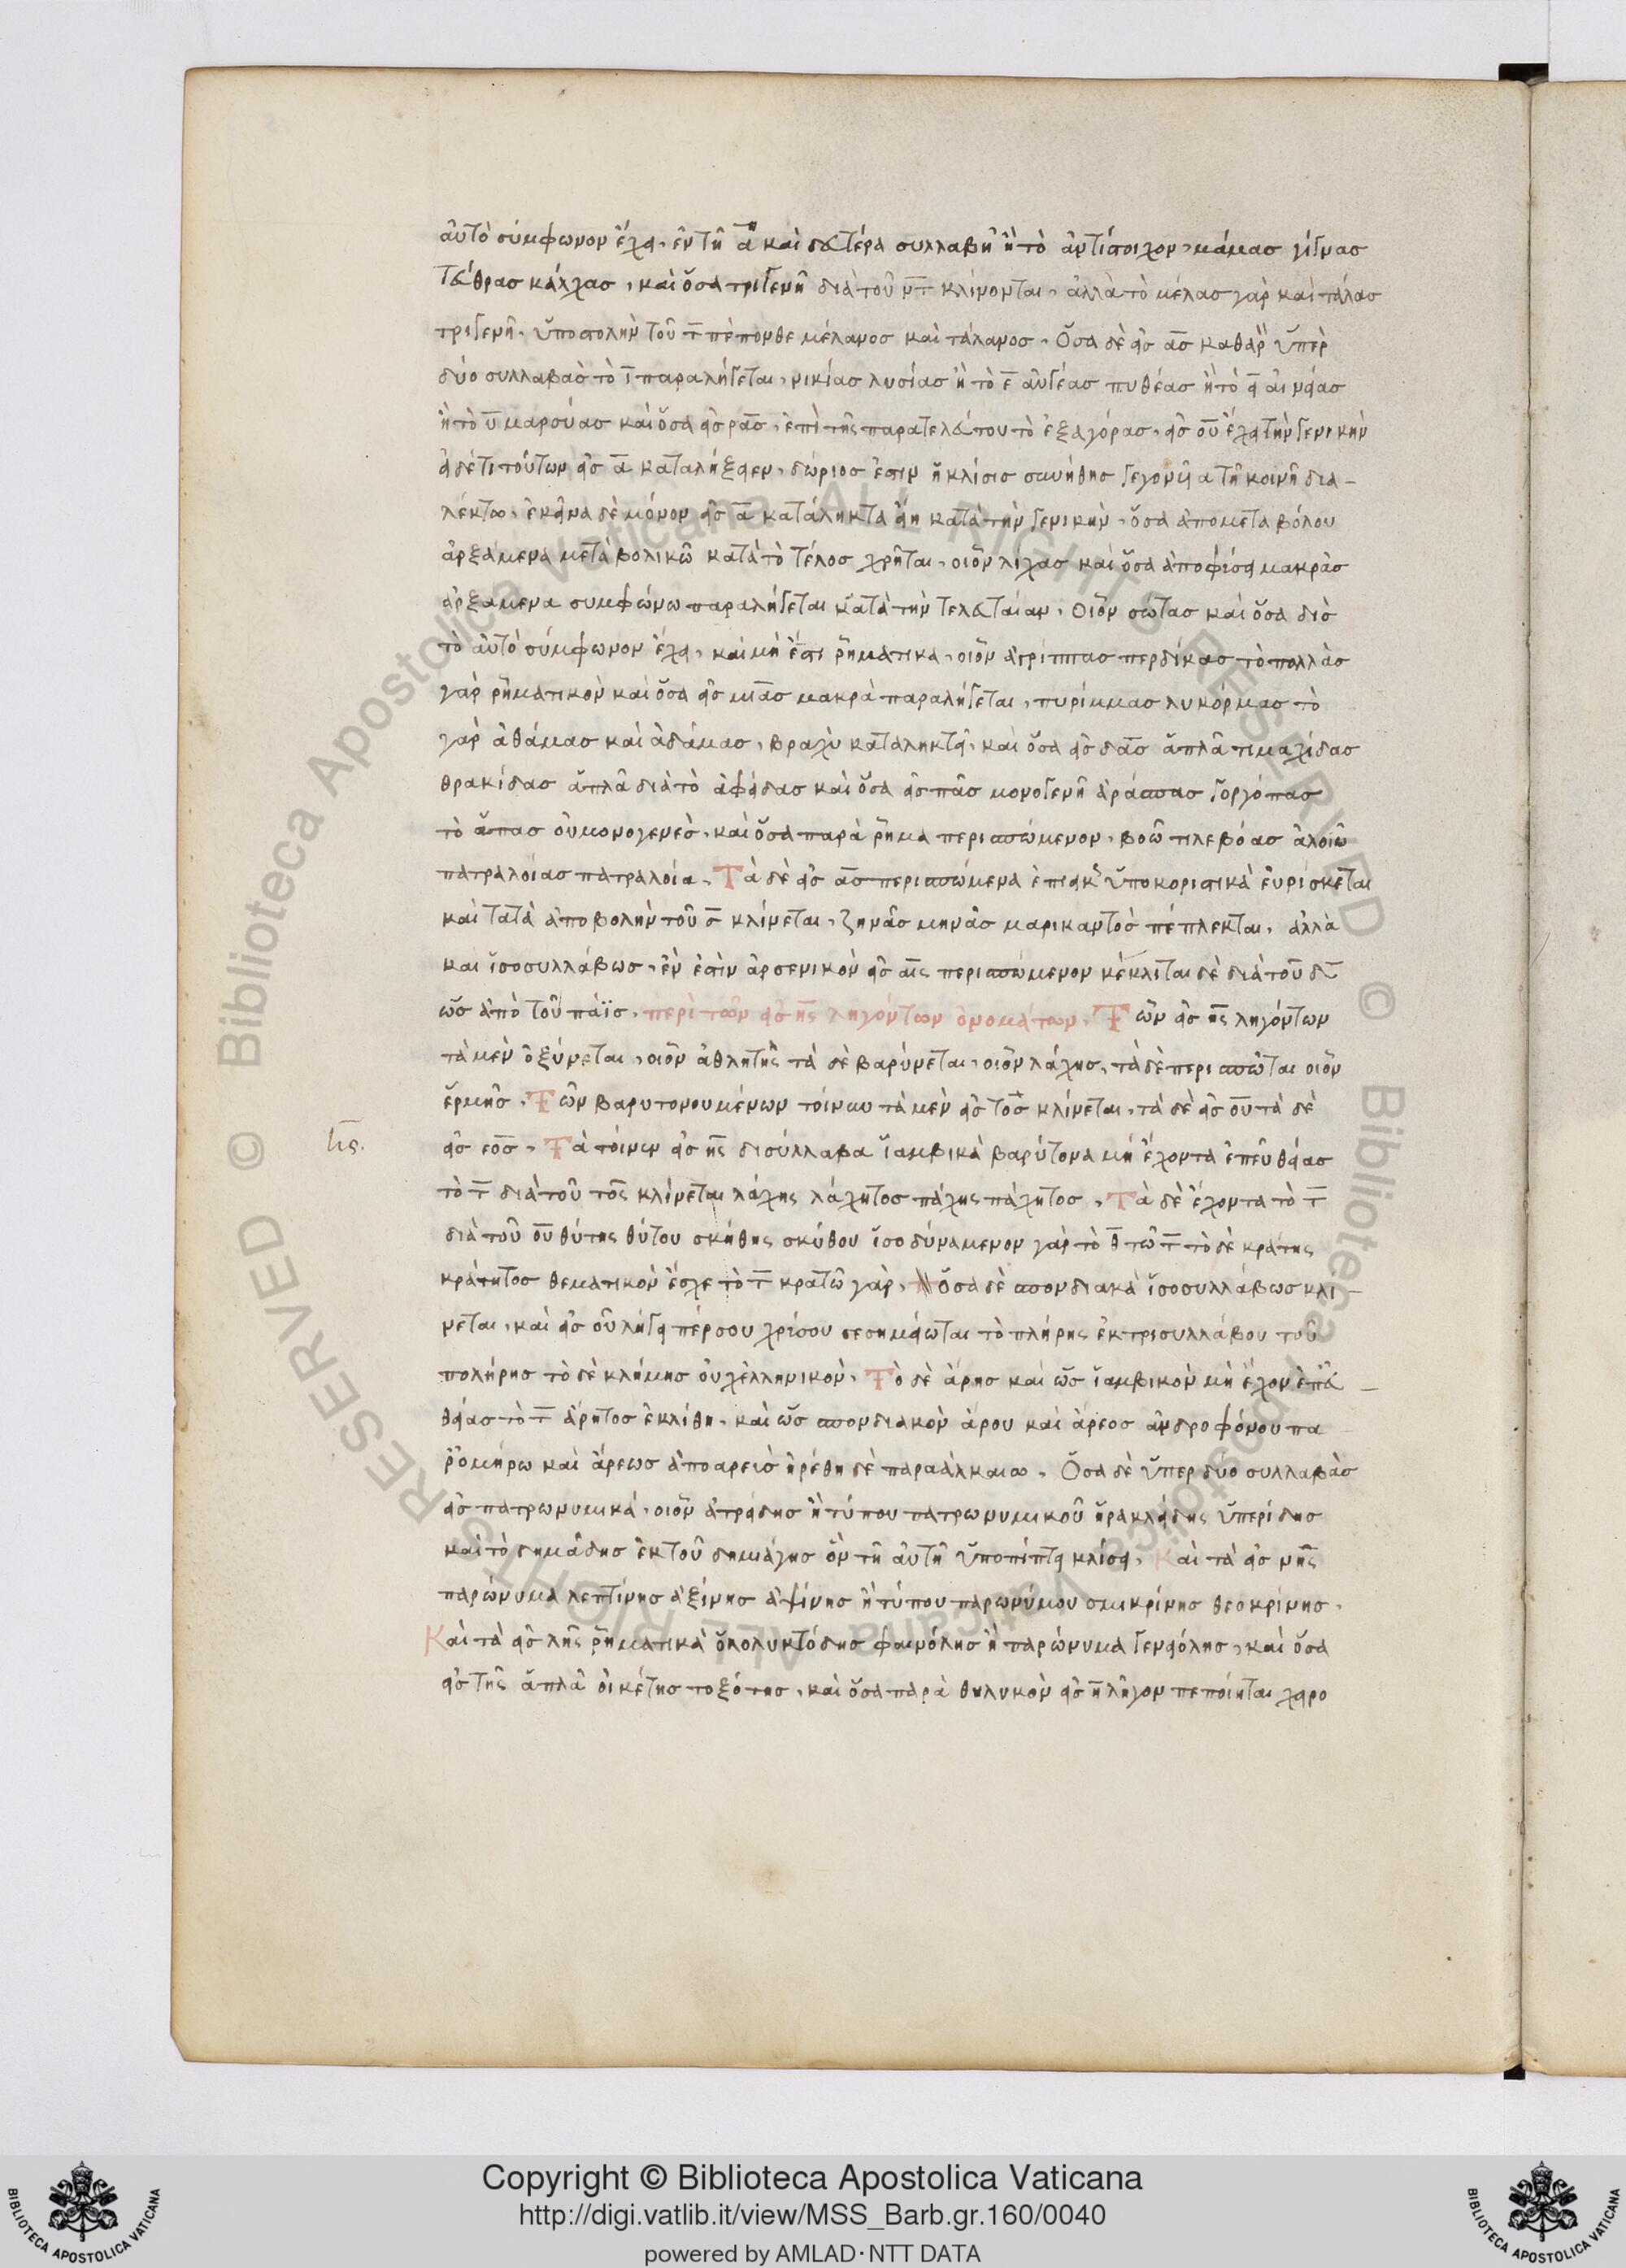 αὐτὸ σύμφωνον ἔχει, ἐν τῆ α̅η καὶ δευτέρα συλλαβῆ ἢ τὸ ἀντίστοιχον, μάμας γίγνας
τεύθρας κάλχας, καὶ ὅσα τριγενῆ διὰ τοῦ ν̅τ̅ κλίνονται, ἀλλὰ τὸ μέλας γὰρ καὶ τάλας
τριγενῆ, ὑποστολὴν τοῦ τ̅ πέπονθε μέλανος καὶ τάλανος, Ὅσα δὲ εἰς α̅ς̅ καθαρ ὑπὲρ
δύο συλλαβὰς τὸ ι̅ παραλήγεται, νικίας λυσίας ἢ τὸ ε̅ αὐγέας πυθέας ἢ τὸ ει̅ αἰνείας
ἢ τὸ υ̅ μαρσύας καὶ ὅσα εἰς ρα̅ς̅, ἐπὶ τῆς παρατελεύτου τὸ ἐξαγόρας, εἰς ου̅ ἔχει τὴν γενικὴν
εἰ δέ τι τούτων εἰς α̅ καταλήξειεν, δώριος ἐστιν ἡ κλίσις συνήθης γεγονυῖα τῆ κοινῆ δια-
λέκτω, ἐκεῖνα δὲ μόνον εἰς α̅ κατάληκτα εἴη κατὰ τὴν γενικὴν, ὅσα ἀπὸ μεταβόλου
ἀρξάμενα μεταβολικῶ κατὰ τὸ τέλος χρῆται, οἷον λίχας καὶ ὅσα ἀπὸ φύσει μακρᾶς
ἀρξάμενα συμφώνω παραλήγεται κατὰ τὴν τελευταίαν, Οἷον σώτας καὶ ὅσα δὶς
τὸ αὐτὸ σύμφωνον ἔχει, καὶ μή ἐστι ῥηματικα, οἷον ἀγρίππας περδίκας τὸ πολλὰς
γὰρ ῥηματικὸν καὶ ὅσα εἰς μα̅ς̅ μακρὰ παραλήγεται, πυρίμμας λυκόρμας τὸ
γὰρ ἀθάμας καὶ ἀδάμας, βραχὺ καταληκτεῖ, καὶ ὅσα εἰς δα̅ς̅ ἁπλᾶ τιμαχίδας
θρακίδας ἁπλᾶ διὰ τὸ ἀφείδας καὶ ὅσα εἰς πα̅ς̅ μονογενῆ ἀράσπας γοργόπας
τὸ ἅπας οὐ μονογενὲς, καὶ ὅσα παρὰ ῥῆμα περισπώμενον, βοῶ τιλεβόας ἀλοιῶ
πατραλοίας πατραλοία, Τὰ δὲ εἰς α̅ς̅ περισπώμενα ὑποκοριστικὰ εὑρίσκεται
καὶ τατὰ ἀποβολὴν τοῦ σ̅ κλίνεται, ζηνᾶς μηνᾶς μαρικαντὸς πέπλεκται, ἀλλὰ
καὶ ἰσοσυλλάβως, ἓν ἐστὶν ἀρσενικὸν εἰς αι̅ς̅ περισπώμενον κέκλιται δὲ διὰ τοῦ δ̅
ὡς ἀπὸ τοῦ πάϊς, περὶ τῶν εἰς η̅ς̅ ληγόντων ὀνομάτων, Τῶν εἰς η̅ς̅ ληγόντων
τὰ μὲν ὀξύνεται, οἷον ἀθλητὴς τὰ δὲ βαρύνεται, οἷον λάχης, τὰ δὲ περισπῶται οἷον
ἑρμῆς, Τῶν βαρυτονουμένων τοίνυν τὰ μὲν εἰς τος κλίνεται, τὰ δὲ εἰς ου̅ τὰ δὲ
εἰς εο̅ς̅, Τὰ τοίνυν εἰς η̅ς̅ δισύλλαβα ἰαμβικὰ βαρύτονα μὴ ἔχοντα ἐπ' εὐθείας
τὸ τ̅ διὰ τοῦ τος κλίνεται λάχης λάχητος πάχης πάχητος, Τὰ δὲ ἔχοντα τὸ τ̅
διὰ τοῦ ου̅ θύτης θύτου σκύθης σκύθου ἰσοδύναμενον γὰρ τὸ θ̅ τῶ τ̅ τὸ δὲ κράτης
κράτητος θεματικὸν ἔσχε τὸ τ̅ κρατῶ γὰρ, ὅσα δὲ σπονδιακὰ ἰσοσυλλάβως κλί-
νεται, καὶ εἰς οὐ λήγει πέρσου χρύσου σεσημείωται τὸ πλήρης ἐκ τρισυλλάβου τοῦ
πολήρης τὸ δὲ κλήμης οὐχ ἑλληνικὸν, Τὸ δὲ ἄρης καὶ ὡς ἰαμβικὸν μὴ ἔχον ἐπ' εὐ-
θείας τὸ τ̅ ἄρητος ἐκλίθη, καὶ ὡς σπονδιακὸν ἄρου καὶ ἄρεος ἀνδροφόνου πα
ρ' ὁμήρω καὶ ἄρεως ἀπὸ αρειὸς ηὑρέθη δὲ παρὰ ἀλκαιω, Ὅσα δὲ ὑπερ δύο συλλαβὰς
εἰς πατρωνυμικά, οἷον ἀτρείδης ἢ τύπου πατρωνυμικοῦ ἡρακλείδης ὑπερίδης
καὶ τὸ δημάδης ἐκ τοῦ δημεάγης ὂν τῆ αὐτῆ ὑποπίπτει κλίσει, Καὶ τὰ εἰς νη̅ς̅
παρώνυμα λεπτίνης ἀξίνης ἀψίνης ἢ τύπου παρωνύμου σμικρίνης θεοκρίνης,
Καὶ τὰ εἰς λη̅ς̅ ῥηματικὰ φαινόλης ἢ παρώνυμα γενειόλης, καὶ ὅσα
εἰς της ἁπλᾶ οἰκέτης τοξότης, καὶ ὅσα παρὰ θηλυκὸν εἰς η̅ λῆγον πεποίηται χειρο
Biblioteca Apostolica Vaticana ALL RIGHTS RESERVED ©
Copyright © Biblioteca Apostolica Vaticana
http://digi.vatlib.it/view/MSS_Barb.gr.160/0040
powered by AMLAD·NTT DATA
BIBLIOTECA APOSTOLICA VATICANA
BIBLIOTECA APOSTOLICA VATICANA